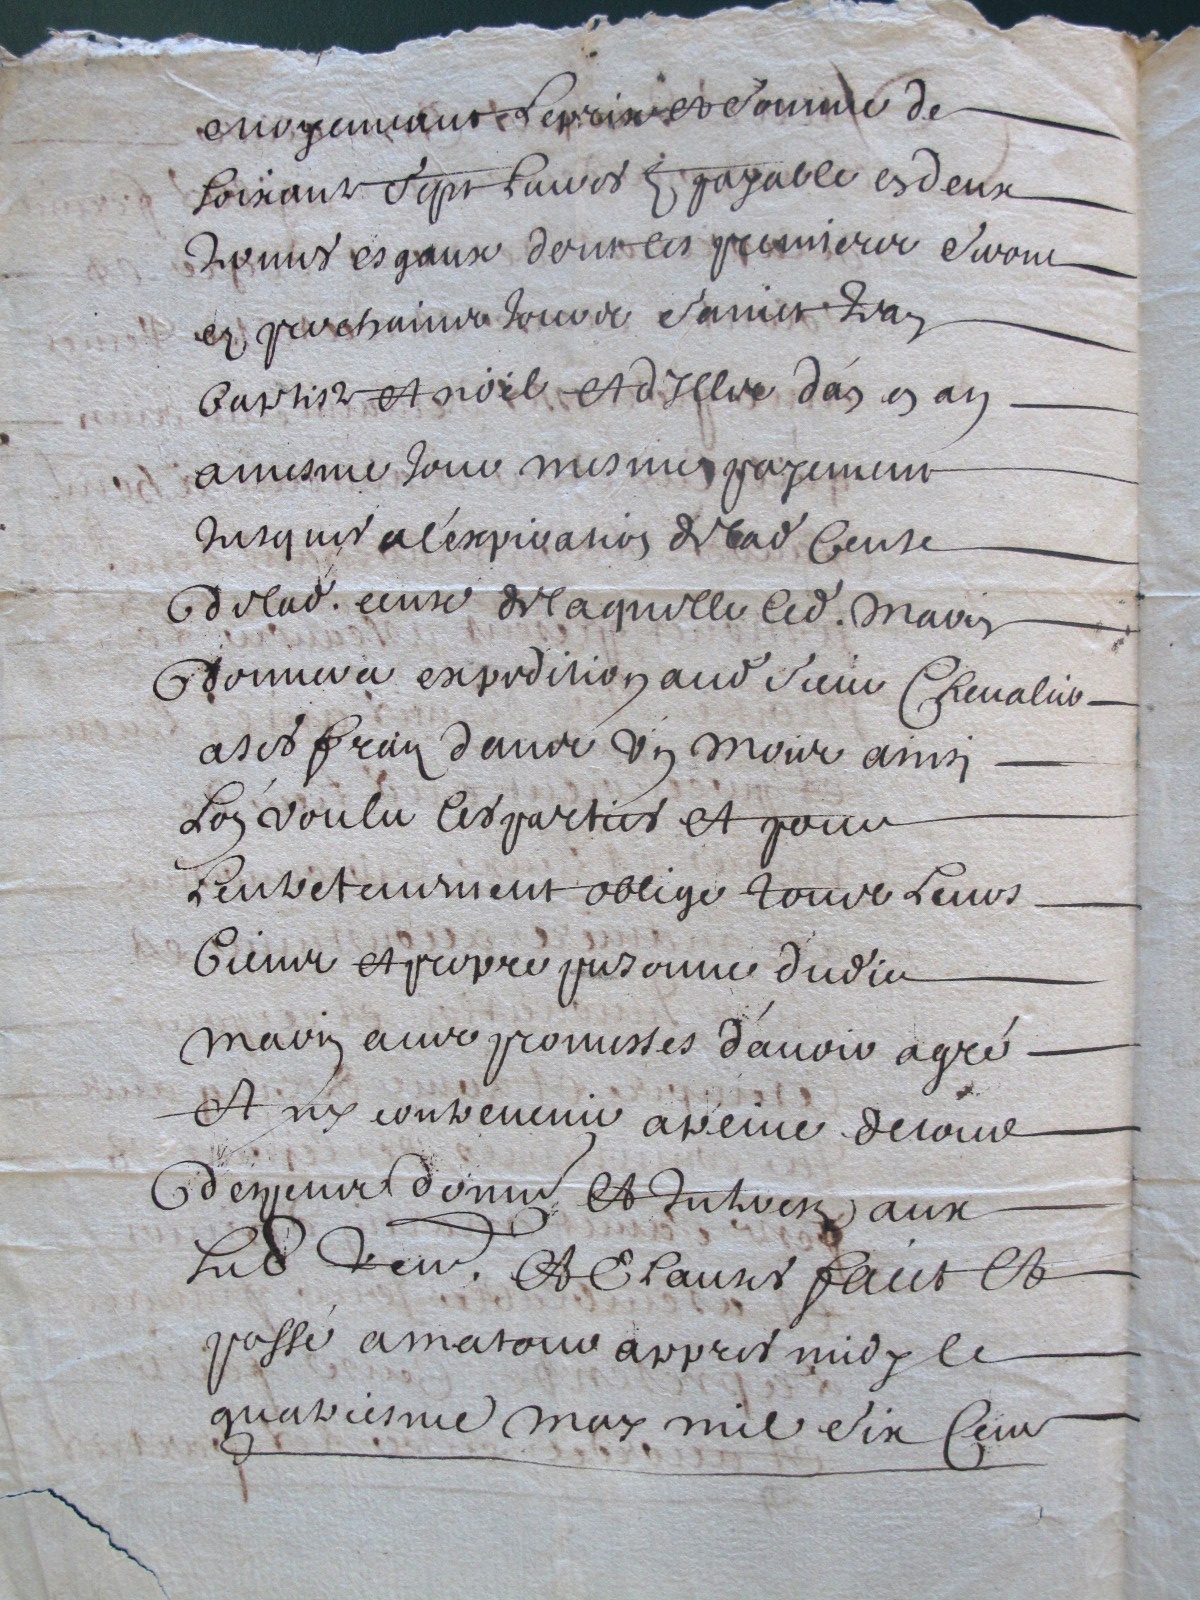 moyennant le prix et somme de
soixante sept livres payable en deux
termes esgaux dont les premiers seront
en prochains jours sainct Jean
baptiste et noël et d'illec d'an en an
a mesme jour mesmes payement
jusques a l'expiration de lad cense
de lad. cense de laquelle led. Marin
donnera expedition aud sieur Chevalier
a ses frais dans un mois ainsi
l'on voulu les parties et pour
l'entretenement oblige tous leurs
biens et propre personne dudit
Marin avec promesses d'avoir agré
et ny contrevenir a peine de tous
despens dom. et interestz aux
sus ren. et Clauses faict et
passé a matour appres midy le
quatriesme may mil six Cens